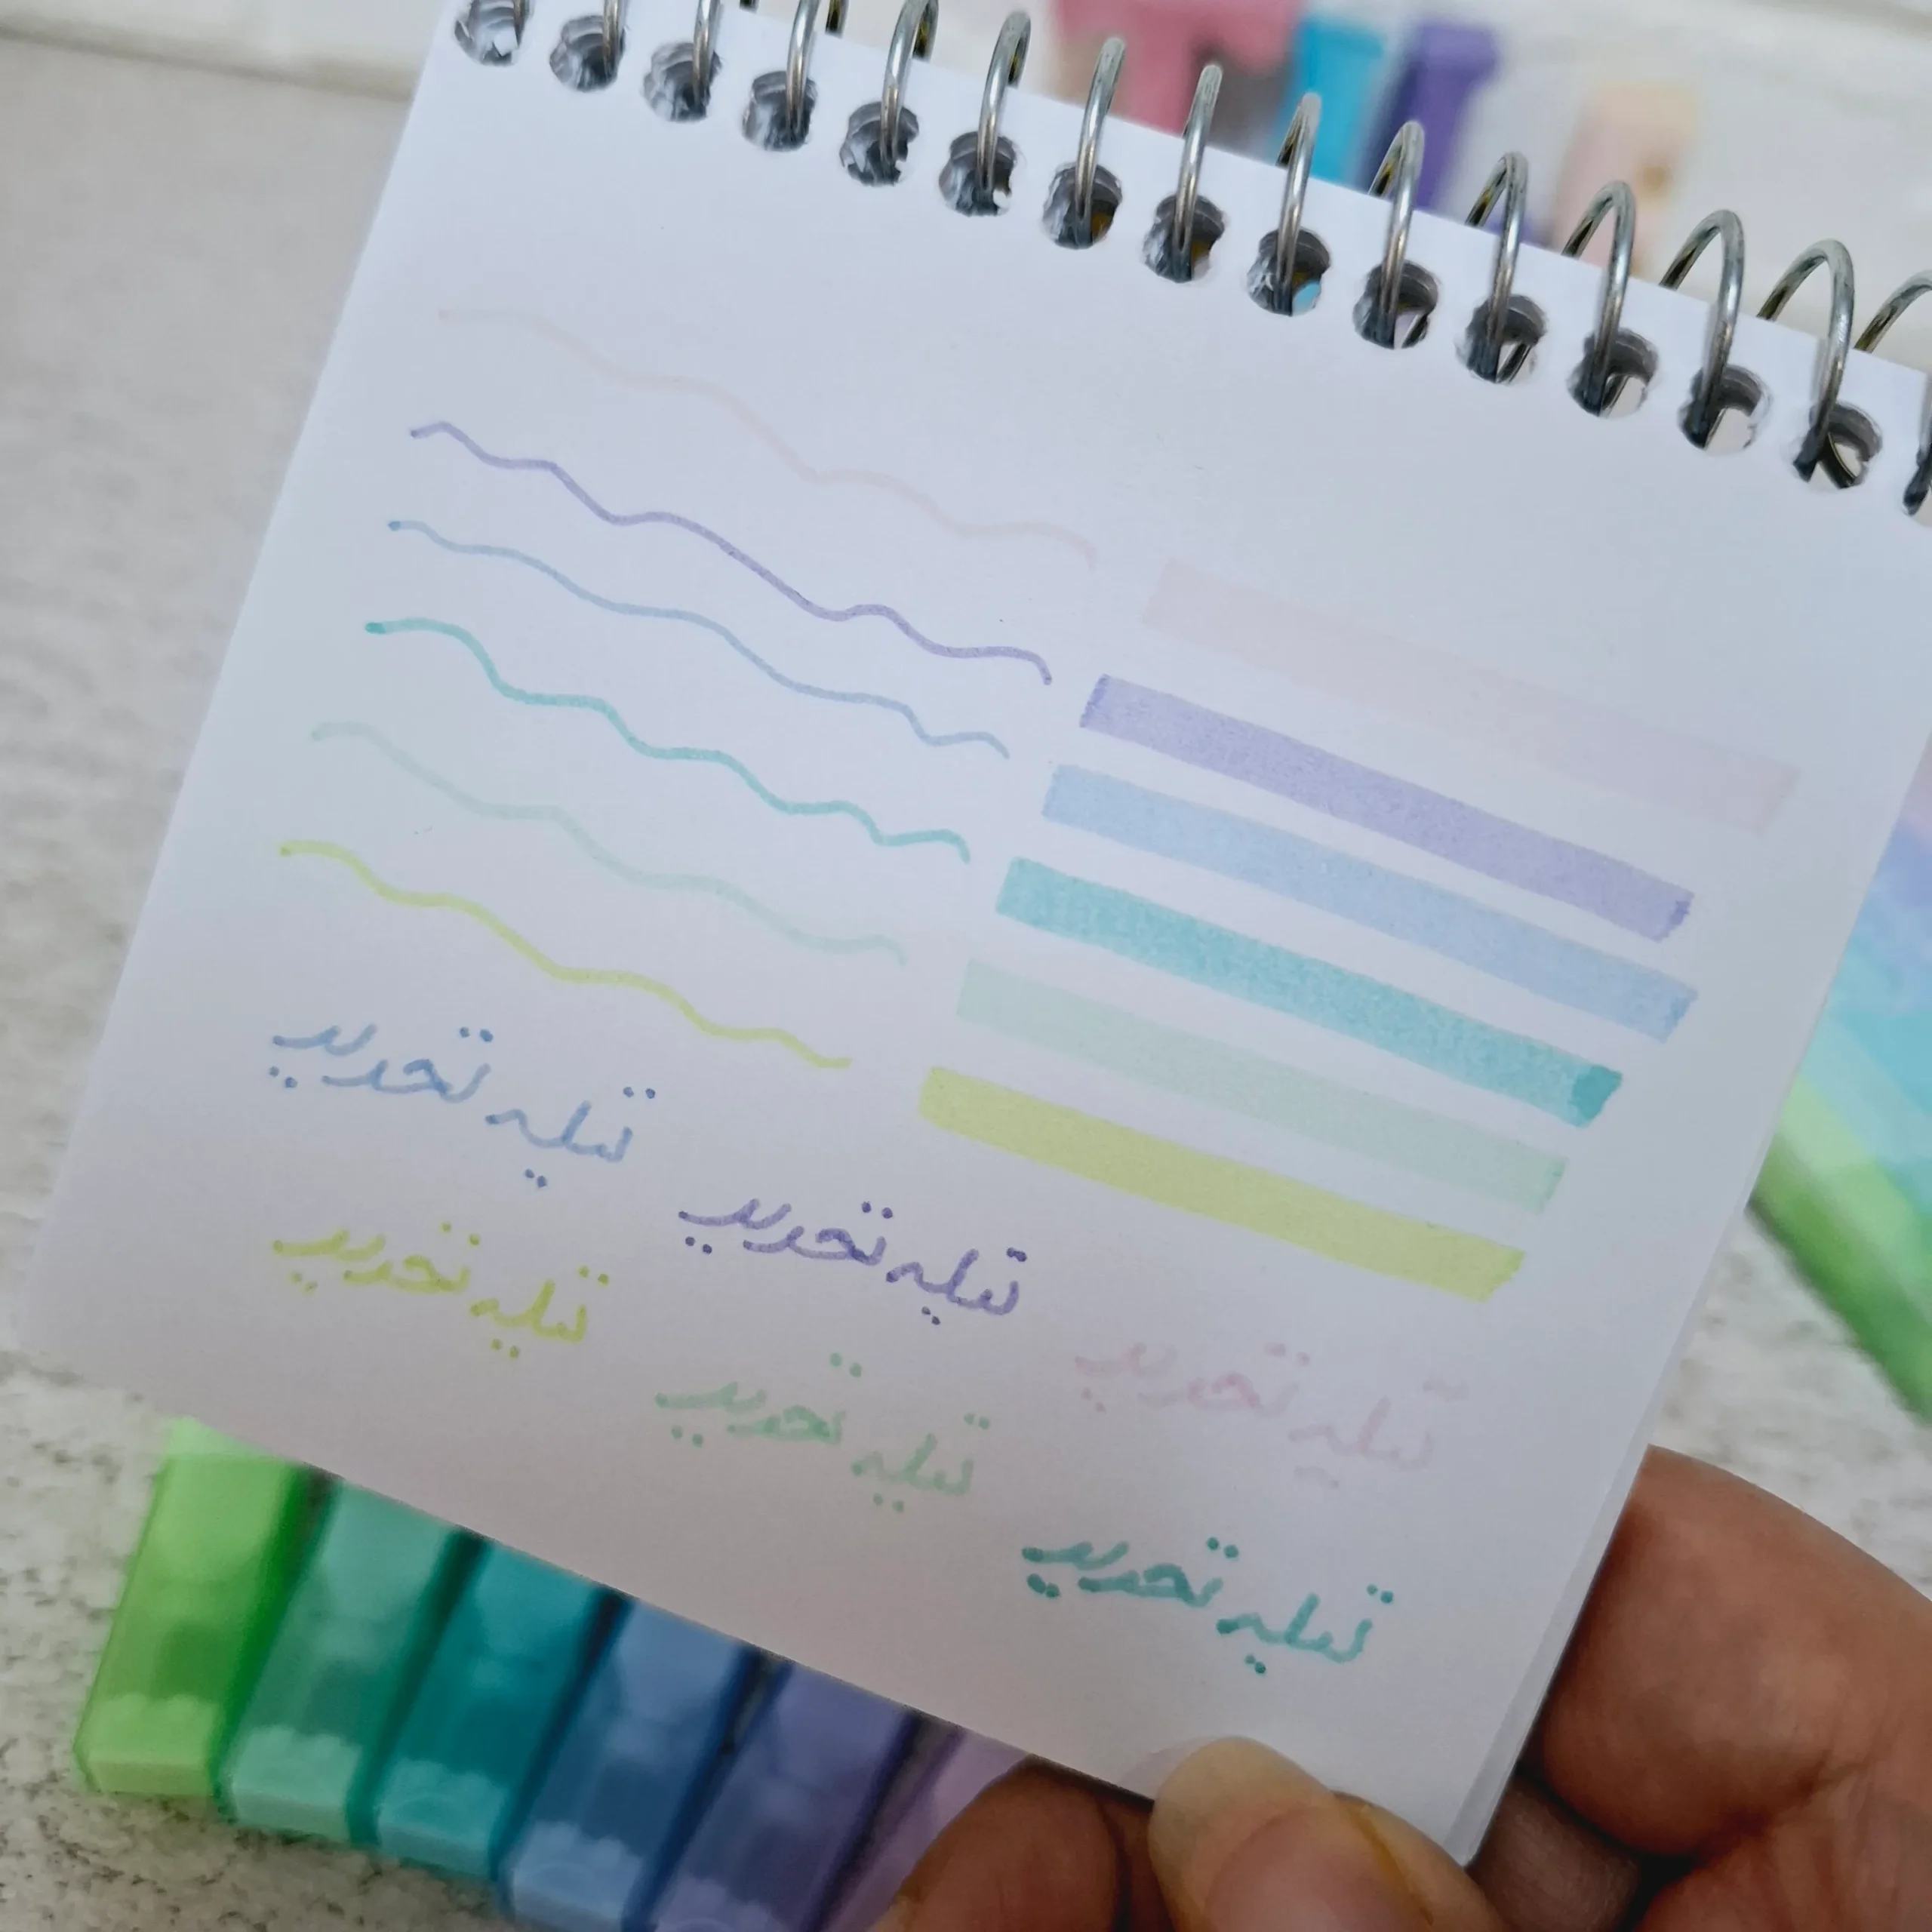 تیله تحریر
تیله تحریر
تیله تحریر
تیله تحریر
تیله تحریر
تیله تحریر